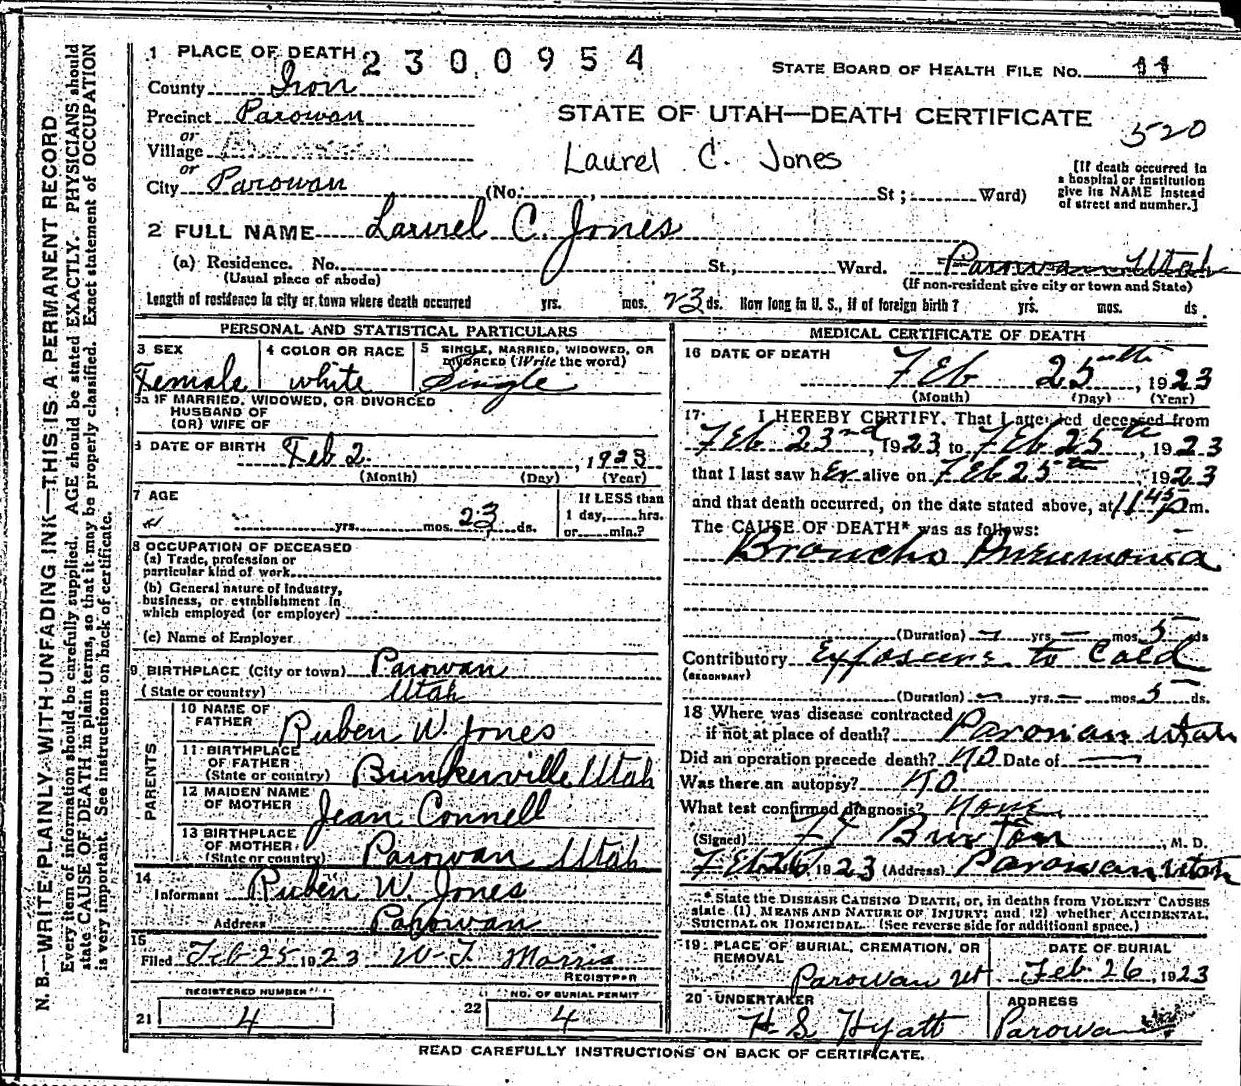 N. B.—WRITE PLAINLY WITH UNFADING INK—THIS IS A PERMANENT RECORD
Every item of information should be carefully supplied. AGE should be stated EXACTLY. PHYSICIANS should
state CAUSE OF DEATH in plain terms, so that it may be properly classified. Exact statement of OCCUPATION
is very important. See instructions on back of certificate.
1 PLACE OF DEATH 2300954
STATE BOARD OF HEALTH FILE NO. 11
County Iron
Precinct Parowan
STATE OF UTAH—DEATH CERTIFICATE
520
or
Village
Laurel C. Jones
or
City Parowan (No. , St ; Ward)
[If death occurred in
a hospital or institution
give its NAME instead
of street and number.]
2 FULL NAME Laurel C. Jones
(a) Residence. No. St., Ward. Parowan Utah
(Usual place of abode) (If non-resident give city or town and State)
Length of residence in city or town where death occurred yrs. mos. 23 ds. How long in U. S., if of foreign birth? yrs. mos. ds.
PERSONAL AND STATISTICAL PARTICULARS
3 SEX
Female
4 COLOR OR RACE
white
5 SINGLE, MARRIED, WIDOWED, OR
DIVORCED (Write the word)
Single
5a IF MARRIED, WIDOWED, OR DIVORCED
HUSBAND OF
(OR) WIFE OF
6 DATE OF BIRTH Feb 2 , 1923
(Month) (Day) (Year)
7 AGE
yrs. mos. 23 ds.
If LESS than
1 day, hrs.
or min.?
8 OCCUPATION OF DECEASED
(a) Trade, profession or
particular kind of work
(b) General nature of Industry,
business, or establishment in
which employed (or employer)
(c) Name of Employer
9 BIRTHPLACE (City or town) Parowan
(State or country) Utah
PARENTS
10 NAME OF
FATHER Ruben W. Jones
11 BIRTHPLACE
OF FATHER
(State or country) Bunkerville Utah
12 MAIDEN NAME
OF MOTHER Jean Connell
13 BIRTHPLACE
OF MOTHER
(State or country) Parowan Utah
14
Informant Ruben W. Jones
Address Parowan
15
Filed Feb 25 1923 W. T. Morris
REGISTRAR
REGISTERED NUMBER
21 4
NO. OF BURIAL PERMIT
22 4
MEDICAL CERTIFICATE OF DEATH
16 DATE OF DEATH
Feb 25th , 1923
(Month) (Day) (Year)
17 I HEREBY CERTIFY, That I attended deceased from
Feb 23rd, 1923, to Feb 25th, 1923
that I last saw her alive on Feb 25th 1923
and that death occurred, on the date stated above, at 11 45 P m.
The CAUSE OF DEATH* was as follows:
Broncho Pneumonia
(Duration) — yrs — mos 5 ds
Contributory Exposure to Cold
(SECONDARY)
(Duration) — yrs — mos 5 ds.
18 Where was disease contracted
if not at place of death? Parowan Utah
Did an operation precede death? NO Date of —
Was there an autopsy? NO
What test confirmed diagnosis? None
(Signed) Burton, M. D.
Feb 26 1923 (Address) Parowan Utah
* State the DISEASE CAUSING DEATH, or, in deaths from VIOLENT CAUSES
state (1) MEANS AND NATURE OF INJURY; and (2) whether ACCIDENTAL,
SUICIDAL OR HOMICIDAL. (See reverse side for additional space.)
19 PLACE OF BURIAL, CREMATION, OR
REMOVAL
Parowan Ut
DATE OF BURIAL
Feb 26, 1923
20 UNDERTAKER
H. S. Hyatt
ADDRESS
Parowan
READ CAREFULLY INSTRUCTIONS ON BACK OF CERTIFICATE.